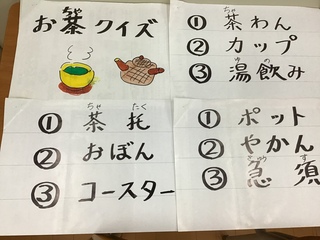 お茶クイズ
① 茶わん
② カップ
③ 湯飲み
① 茶托
② おぼん
③ コースター
① ポット
② やかん
③ 急須